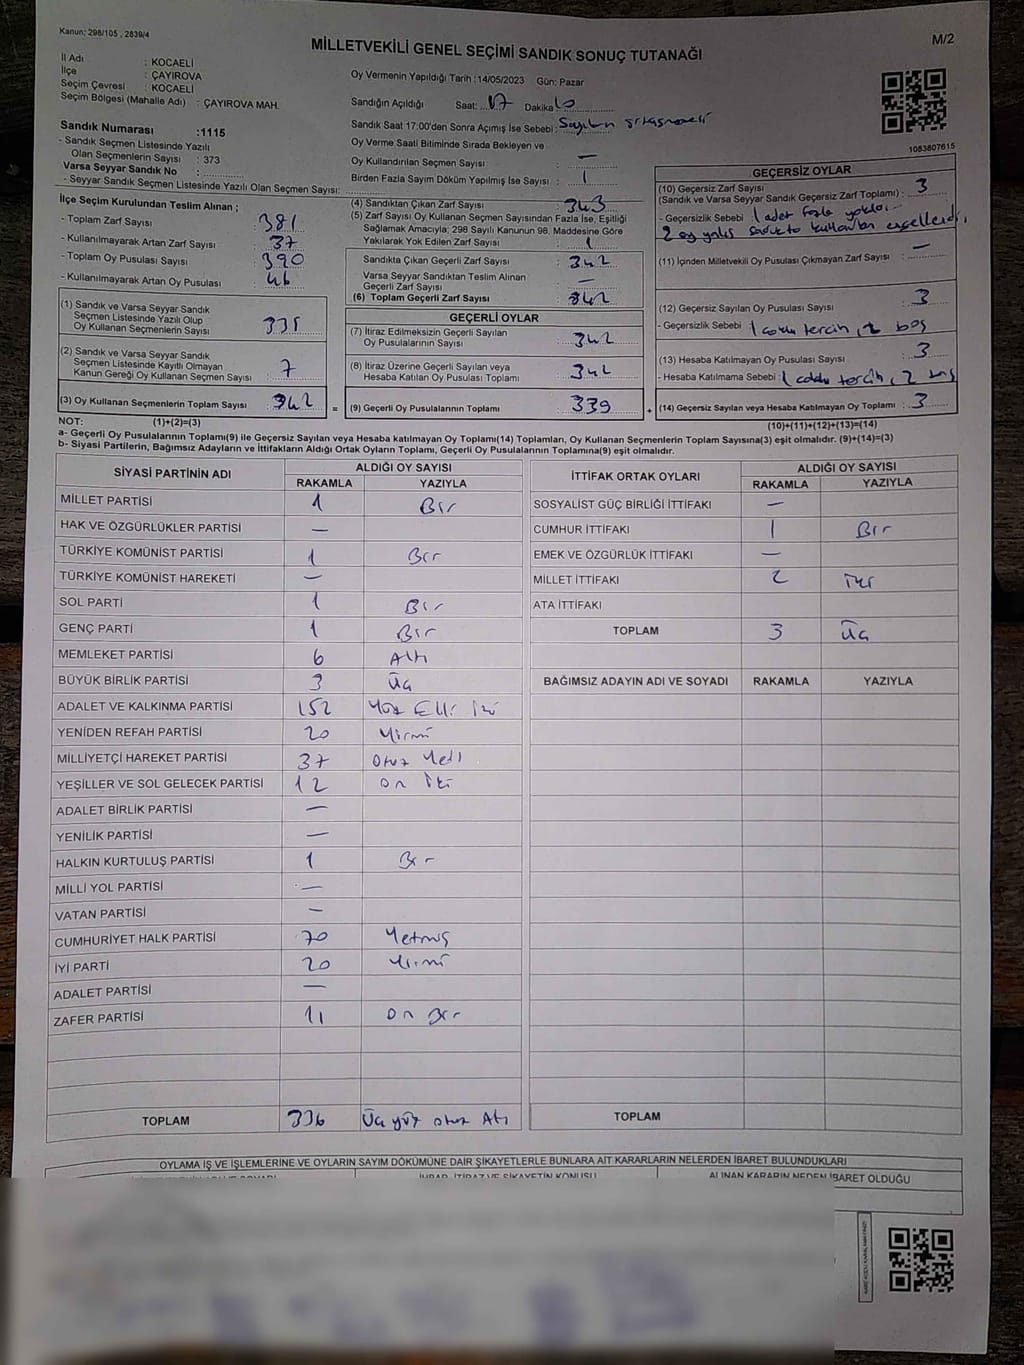 Kanun; 298/105 , 2839/4
M/2
MİLLETVEKİLİ GENEL SEÇİMİ SANDIK SONUÇ TUTANAĞI
İl Adı : KOCAELİ
İlçe : ÇAYIROVA
Seçim Çevresi : KOCAELİ
Seçim Bölgesi (Mahalle Adı) : ÇAYIROVA MAH.
Sandık Numarası :1115
- Sandık Seçmen Listesinde Yazılı
Olan Seçmenlerin Sayısı : 373
Varsa Seyyar Sandık No :
- Seyyar Sandık Seçmen Listesinde Yazılı Olan Seçmen Sayısı:
Oy Vermenin Yapıldığı Tarih :14/05/2023 Gün: Pazar
Sandığın Açıldığı Saat: 17 Dakika 10
Sandık Saat 17:00'den Sonra Açımış İse Sebebi :
Oy Verme Saati Bitiminde Sırada Bekleyen ve
Oy Kullandırılan Seçmen Sayısı : —
Birden Fazla Sayım Döküm Yapılmış İse Sayısı : 1
1083807615
İlçe Seçim Kurulundan Teslim Alınan ;
- Toplam Zarf Sayısı : 381
- Kullanılmayarak Artan Zarf Sayısı : 37
- Toplam Oy Pusulası Sayısı : 390
- Kullanılmayarak Artan Oy Pusulası : 46
(1) Sandık ve Varsa Seyyar Sandık
Seçmen Listesinde Yazılı Olup
Oy Kullanan Seçmenlerin Sayısı : 335
(2) Sandık ve Varsa Seyyar Sandık
Seçmen Listesinde Kayıtlı Olmayan
Kanun Gereği Oy Kullanan Seçmen Sayısı : 7
(3) Oy Kullanan Seçmenlerin Toplam Sayısı : 342
(4) Sandıktan Çıkan Zarf Sayısı : 343
(5) Zarf Sayısı Oy Kullanan Seçmen Sayısından Fazla İse, Eşitliği
Sağlamak Amacıyla; 298 Sayılı Kanunun 98. Maddesine Göre
Yakılarak Yok Edilen Zarf Sayısı : 1
Sandıkta Çıkan Geçerli Zarf Sayısı : 342
Varsa Seyyar Sandıktan Teslim Alınan
Geçerli Zarf Sayısı : —
(6) Toplam Geçerli Zarf Sayısı : 342
GEÇERLİ OYLAR
(7) İtiraz Edilmeksizin Geçerli Sayılan
Oy Pusulalarının Sayısı : 342
(8) İtiraz Üzerine Geçerli Sayılan veya
Hesaba Katılan Oy Pusulası Toplamı : 342
= (9) Geçerli Oy Pusulalarının Toplamı : 339 +
GEÇERSİZ OYLAR
(10) Geçersiz Zarf Sayısı
(Sandık ve Varsa Seyyar Sandık Geçersiz Zarf Toplamı) : 3
- Geçersizlik Sebebi 1 adet fazla
2 oy
(11) İçinden Milletvekili Oy Pusulası Çıkmayan Zarf Sayısı : —
(12) Geçersiz Sayılan Oy Pusulası Sayısı : 3
- Geçersizlik Sebebi 1 tercih, 2 boş
(13) Hesaba Katılmayan Oy Pusulası Sayısı : 3
- Hesaba Katılmama Sebebi : 1 tercih, 2 boş
(14) Geçersiz Sayılan veya Hesaba Katılmayan Oy Toplamı : 3
NOT: (1)+(2)=(3)
(10)+(11)+(12)+(13)=(14)
a- Geçerli Oy Pusulalarının Toplamı(9) ile Geçersiz Sayılan veya Hesaba katılmayan Oy Toplamı(14) Toplamları, Oy Kullanan Seçmenlerin Toplam Sayısına(3) eşit olmalıdır. (9)+(14)=(3)
b- Siyasi Partilerin, Bağımsız Adayların ve İttifakların Aldığı Ortak Oyların Toplamı, Geçerli Oy Pusulalarının Toplamına(9) eşit olmalıdır.
SİYASİ PARTİNİN ADI ALDIĞI OY SAYISI
RAKAMLA YAZIYLA
MİLLET PARTİSİ 1 Bir
HAK VE ÖZGÜRLÜKLER PARTİSİ —
TÜRKİYE KOMÜNİST PARTİSİ 1 Bir
TÜRKİYE KOMÜNİST HAREKETİ —
SOL PARTİ 1 Bir
GENÇ PARTİ 1 Bir
MEMLEKET PARTİSİ 6 Altı
BÜYÜK BİRLİK PARTİSİ 3 Üç
ADALET VE KALKINMA PARTİSİ 152 Yüz Elli İki
YENİDEN REFAH PARTİSİ 20 Yirmi
MİLLİYETÇİ HAREKET PARTİSİ 37 Otuz Yedi
YEŞİLLER VE SOL GELECEK PARTİSİ 12 On İki
ADALET BİRLİK PARTİSİ —
YENİLİK PARTİSİ —
HALKIN KURTULUŞ PARTİSİ 1 Bir
MİLLİ YOL PARTİSİ —
VATAN PARTİSİ —
CUMHURİYET HALK PARTİSİ 70 Yetmiş
İYİ PARTİ 20 Yirmi
ADALET PARTİSİ —
ZAFER PARTİSİ 11 On Bir
TOPLAM 336 Üç yüz otuz Altı
İTTİFAK ORTAK OYLARI ALDIĞI OY SAYISI
RAKAMLA YAZIYLA
SOSYALİST GÜÇ BİRLİĞİ İTTİFAKI —
CUMHUR İTTİFAKI 1 Bir
EMEK VE ÖZGÜRLÜK İTTİFAKI —
MİLLET İTTİFAKI 2 İki
ATA İTTİFAKI
TOPLAM 3 Üç
BAĞIMSIZ ADAYIN ADI VE SOYADI RAKAMLA YAZIYLA
TOPLAM
OYLAMA İŞ VE İŞLEMLERİNE VE OYLARIN SAYIM DÖKÜMÜNE DAİR ŞİKAYETLERLE BUNLARA AİT KARARLARIN NELERDEN İBARET BULUNDUKLARI
İHBAR, İTİRAZ VE ŞİKAYETİN KONUSU ALINAN KARARIN NEDEN İBARET OLDUĞU